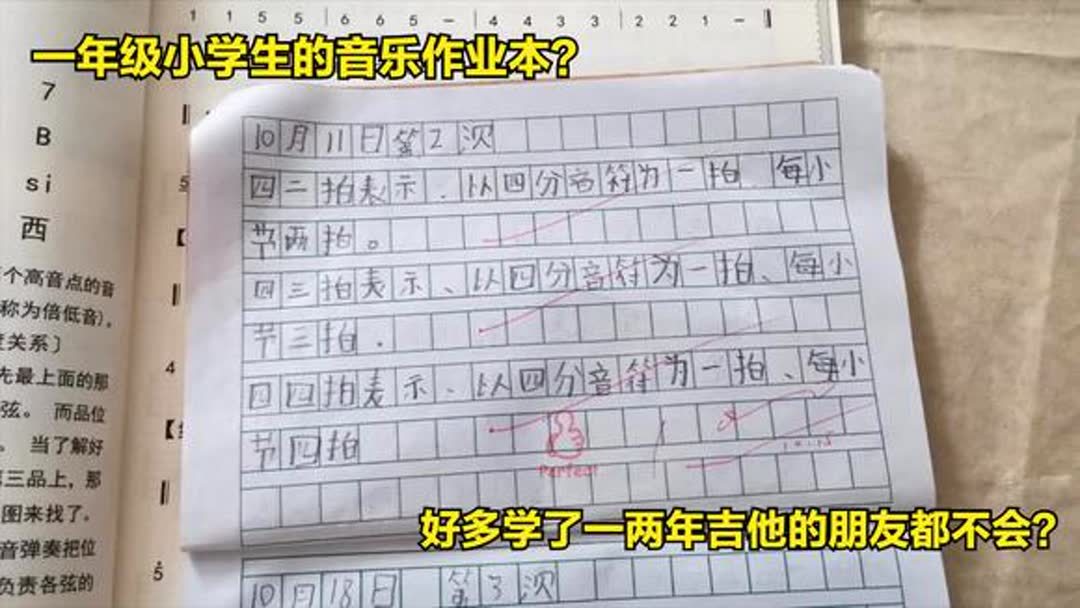 1 1 5 5 | 6 6 5 – | 4 4 3 3 | 2 2 1 – ‖
一年级小学生的音乐作业本?
7
B
si
西
个高音点的音
称为倍低音)。
关系〕
先最上面的那
弦。 而品位
。 当了解好
三品上，那
图来找了。
音弹奏把位
负责各弦的
5
4
5
10月11日第2次
四二拍表示.以四分音符为一拍.每小
节两拍。
四三拍表示、以四分音符为一拍、每小
节三拍.
四四拍表示、以四分音符为一拍、每小
节四拍
Perfect
10.15
好多学了一两年吉他的朋友都不会?
10月18日 第3次